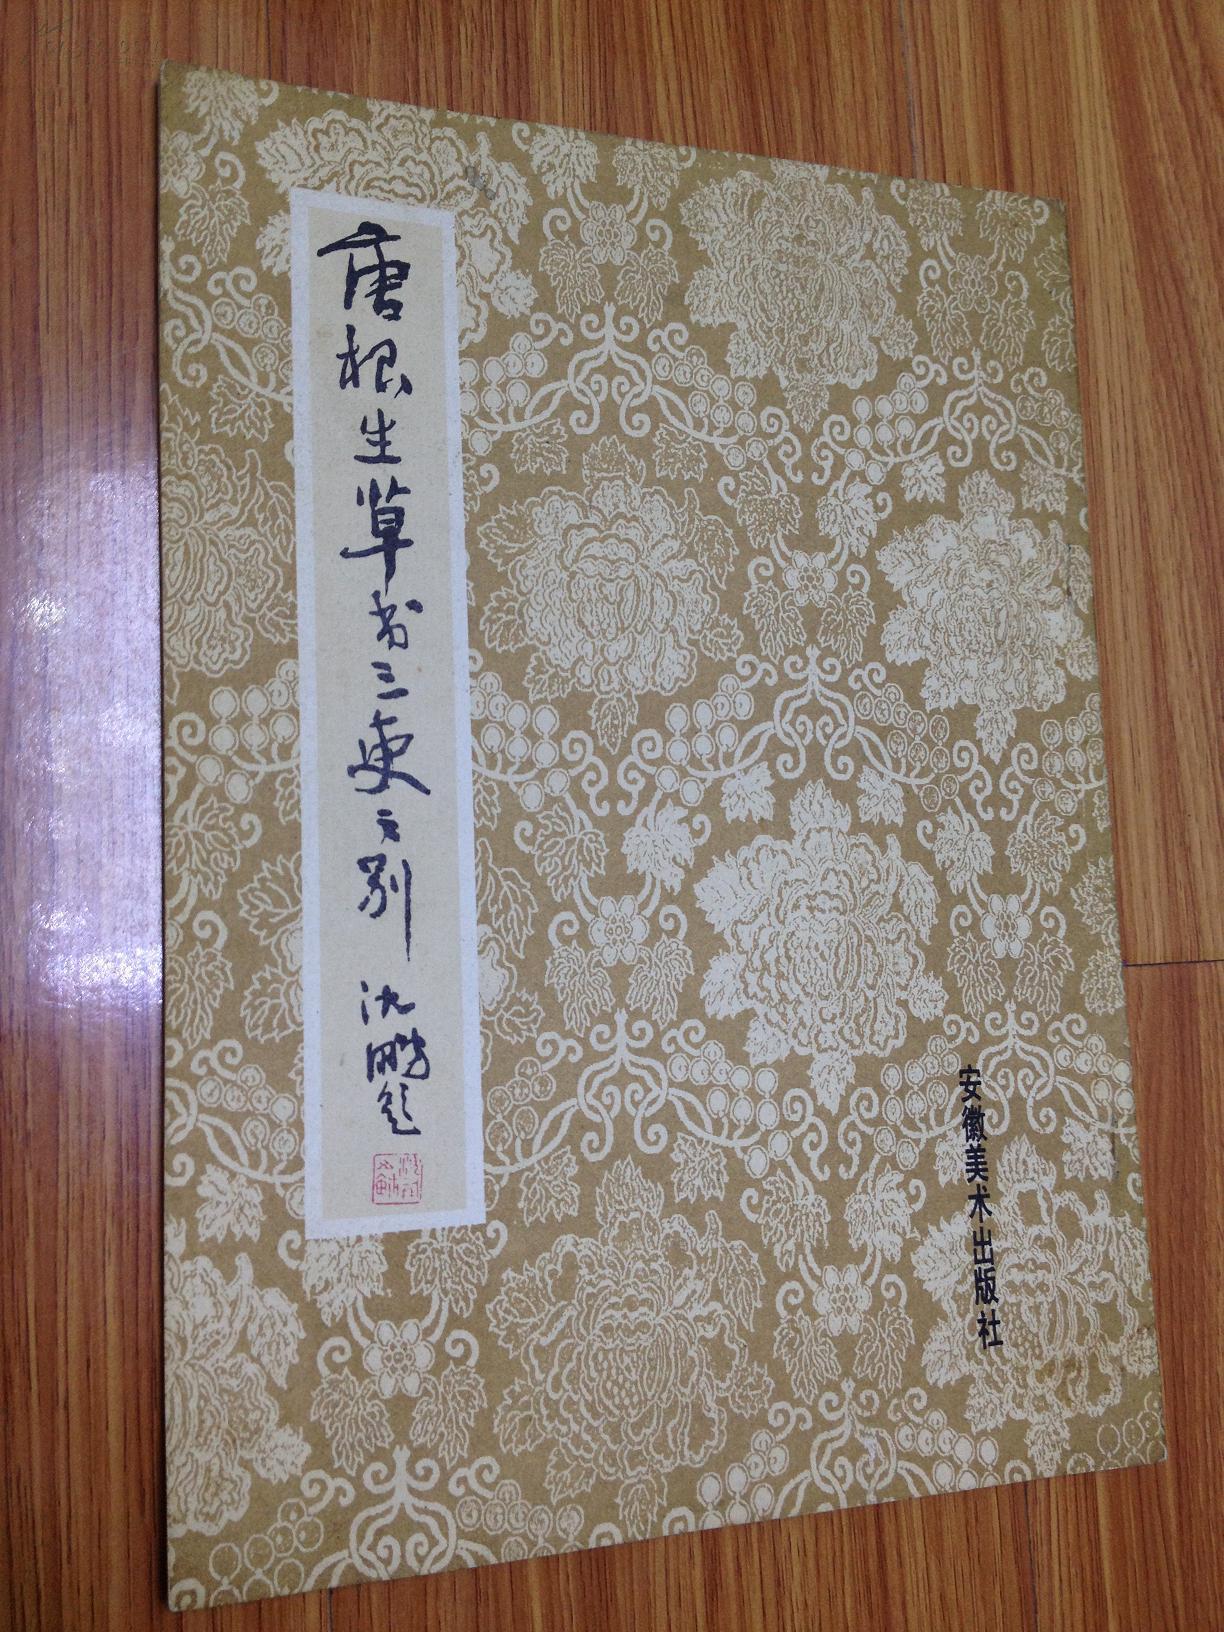 唐根生草书三吏三别
沈鹏题
安徽美术出版社